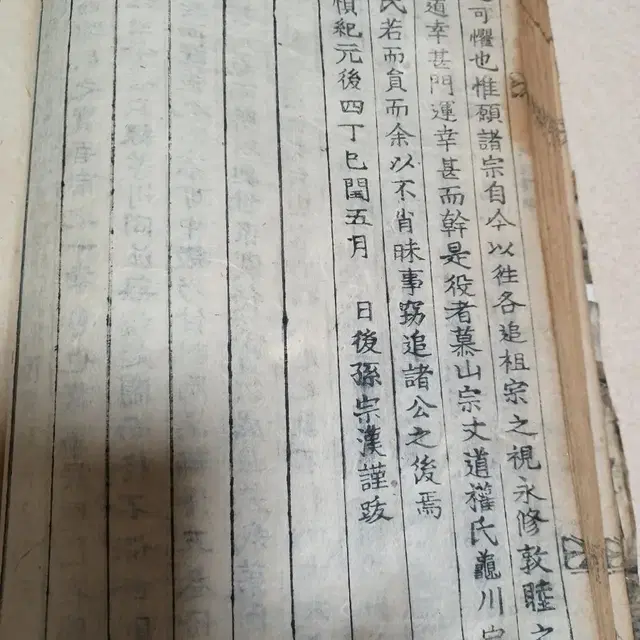 可懼也惟願諸宗自今以徃各追祖宗之視永修敦睦之
道幸甚門運幸甚而幹是役者慕山宗丈道權氏龜川宗
氏若而員而余以不肖昧事窃追諸公之後焉
禎紀元後四丁巳閏五月 日後孫宗漢謹跋